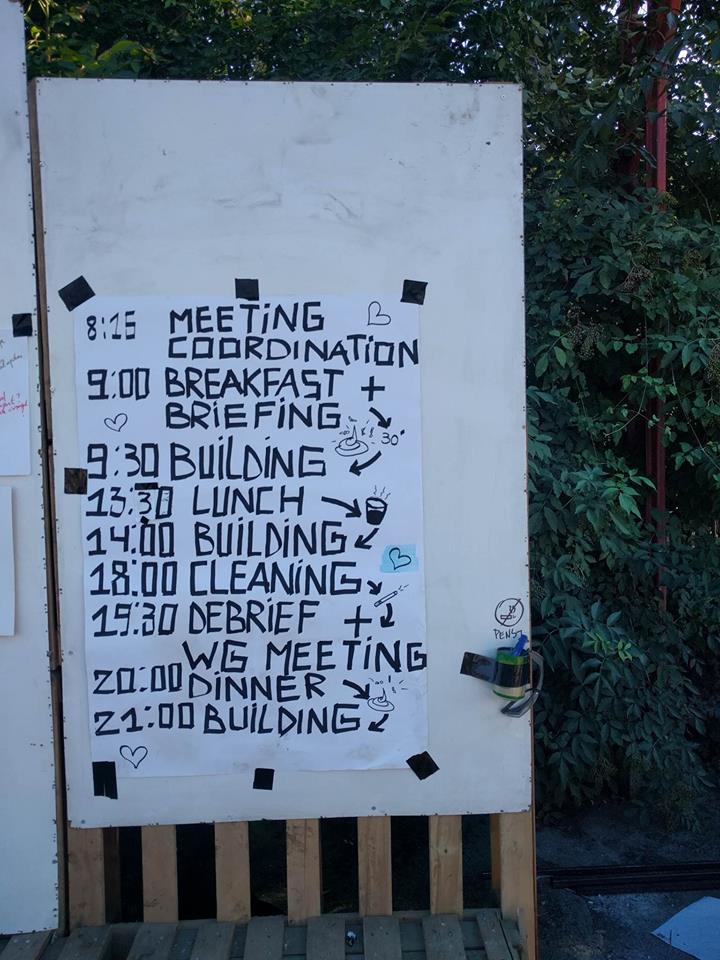 8:15 MEETING
COORDINATION
9:00 BREAKFAST +
BRIEFING
30'
9:30 BUILDING
13:30 LUNCH
14:00 BUILDING
18:00 CLEANING
19:30 DEBRIEF +
WG MEETING
20:00 DINNER
21:00 BUILDING
PENS